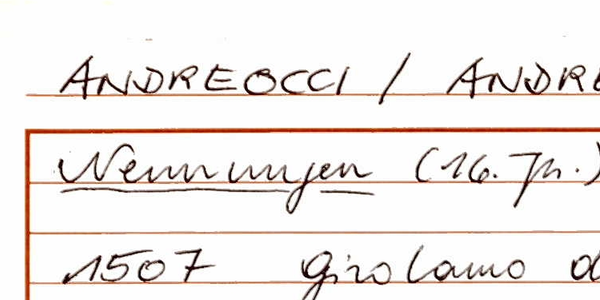 ANDREOCCI / ANDRE
Nennungen (16. Jh.)
1507 Girolamo d